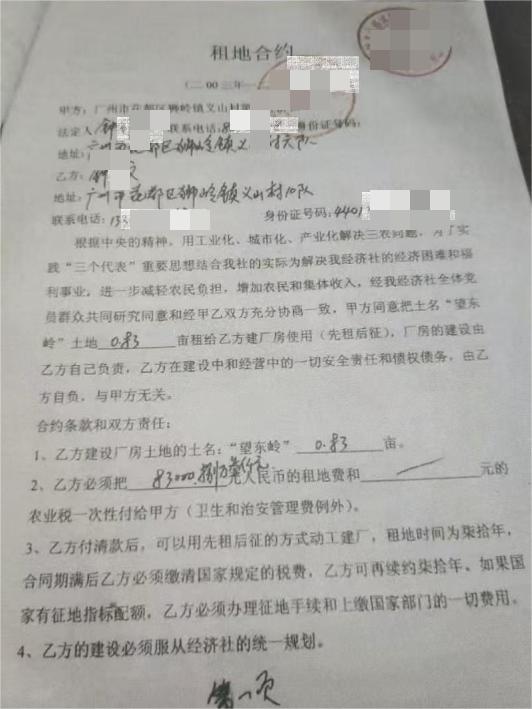 租地合约
(二00三年一
甲方:广州市花都区狮岭镇义山村
法定人 钟 联系电话:8 身份证号码:
地址: 广州市花都区狮岭镇义 村六队
乙方:
地址:广州市花都区狮岭镇义山村10队
联系电话:13 身份证号码:4401
根据中央的精神,用工业化、城市化、产业化解决三农问题,为了实
践“三个代表”重要思想结合我社的实际为解决我经济社的经济困难和福
利事业,进一步减轻农民负担,增加农民和集体收入,经我经济社全体党
员群众共同研究同意和经甲乙双方充分协商一致,甲方同意把土名“望东
岭”土地 0.83 亩租给乙方建厂房使用(先租后征),厂房的建设由
乙方自己负责,乙方在建设中和经营中的一切安全责任和债权债务,由乙
方自负,与甲方无关。
合约条款和双方责任:
1、乙方建设厂房土地的土名:“望东岭” 0.83 亩。
2、乙方必须把 83000.捌万叁仟元 元人民币的租地费和 / 元的
农业税一次性付给甲方(卫生和治安管理费例外)。
3、乙方付清款后,可以用先租后征的方式动工建厂,租地时间为柒拾年,
合同期满后乙方必须缴清国家规定的税费,乙方可再续约柒拾年、如果国
家有征地指标配额,乙方必须办理征地手续和上缴国家部门的一切费用。
4、乙方的建设必须服从经济社的统一规划。
第一页